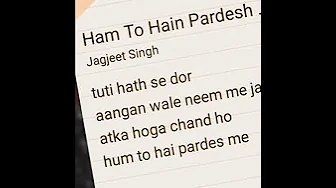 Ham To Hain Pardesh .
Jagjeet Singh
tuti hath se dor
aangan wale neem me ja
atka hoga chand ho
hum to hai pardes me